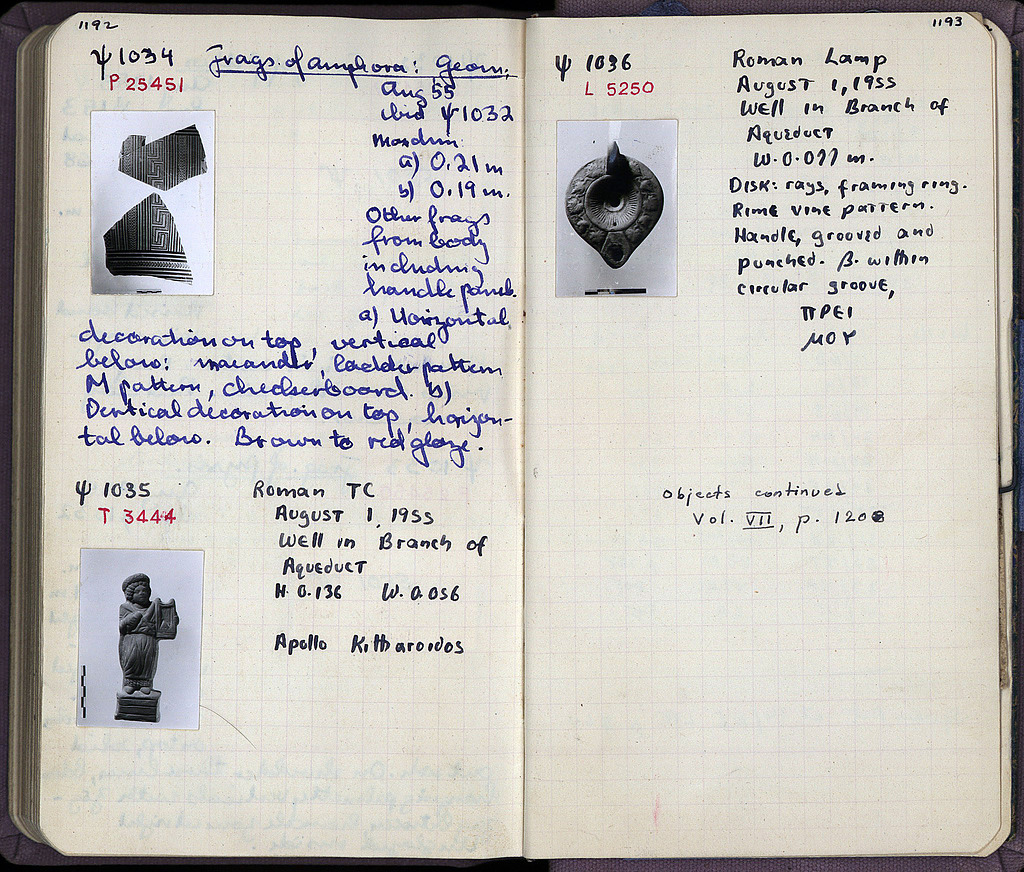 1192
ψ 1034 Frags. of amphora: Geom.
P 25451
Aug 55
ibid ψ 1032
Max dim:
a) 0.21 m
b) 0.19 m.
Other frags
from body
including
handle panels.
a) Horizontal
decoration on top, vertical
below: maeander, ladder pattern
M pattern, checkerboard. b)
Vertical decoration on top, horizon-
tal below. Brown to red glaze.
ψ 1035 Roman TC
T 3444
August 1, 1955
Well in Branch of
Aqueduct
H. 0.136 W. 0.056
Apollo Kitharoidos
1193
ψ 1036 Roman Lamp
L 5250
August 1, 1955
Well in Branch of
Aqueduct
W. 0.077 m.
Disk: rays, framing ring.
Rim: vine pattern.
Handle, grooved and
punched. B. within
circular groove,
ΠΡΕΙ
ΜΟΥ
Objects continued
Vol. VII, p. 1208